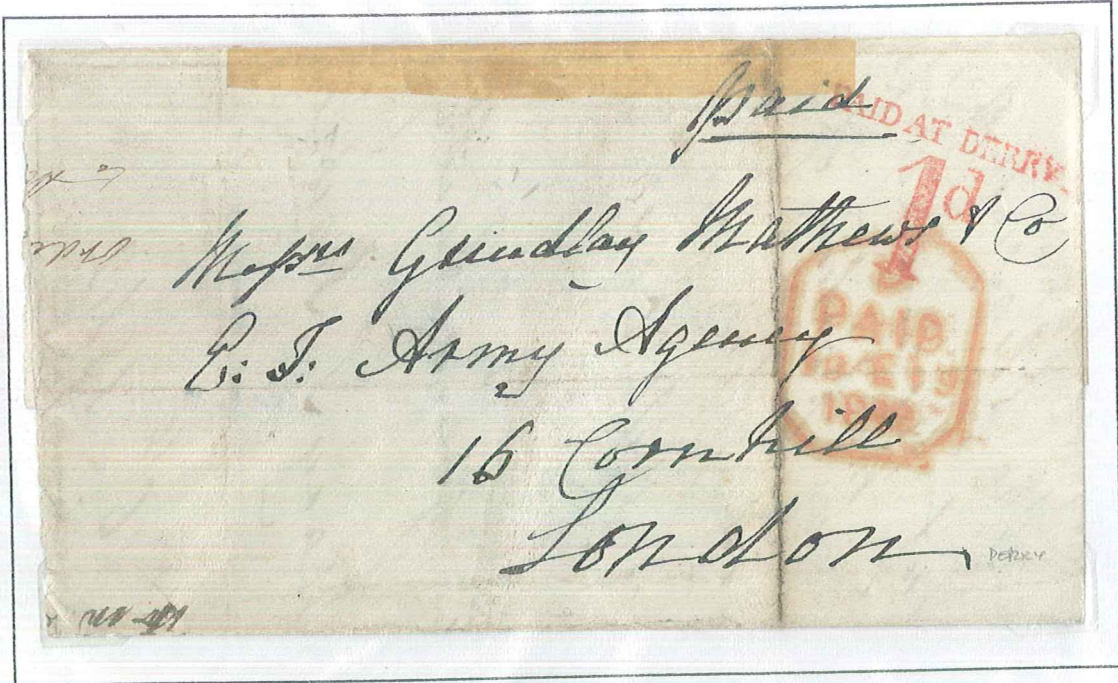 Paid
PAID AT DERRY
1d
Messrs Grindlay Mathews & Co
E. I. Army Agency
PAID
16 Cornhill
London
DERRY